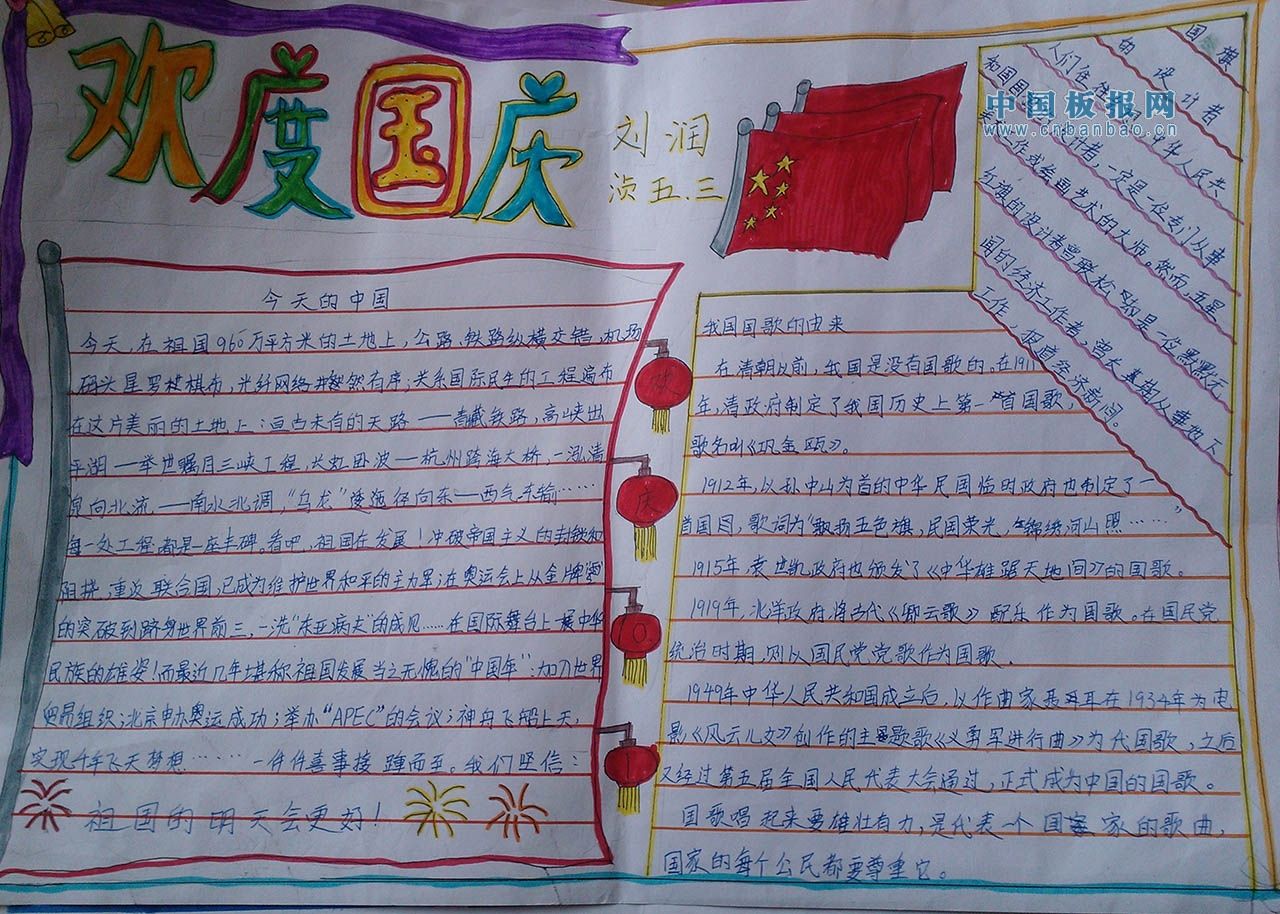 欢度国庆
刘润
浈五.三
中国板报网
www.cnbanbao.cn
今天的中国
今天,在祖国960万平方米的土地上,公路、铁路纵横交错,机场
码头星罗棋布,光纤网络井然有序;关系国际民生的工程遍布
在这片美丽的土地上:亘古未有的天路——青藏铁路,高峡出
平湖——举世瞩目三峡工程,长虹卧波——杭州跨海大桥,一泓清
泉向北流——南水北调,"乌龙"逶迤径向东——西气东输……
每一处工程都是一座丰碑。看吧,祖国在发展!冲破帝国主义的封锁和
阻挠,重返联合国,已成为维护世界和平的主力军;在奥运会上从金牌零
的突破到跻身世界前三,一洗"东亚病夫"的成见……在国际舞台上一展中华
民族的雄姿!而最近几年堪称祖国发展当之无愧的"中国年":加入世界
贸易组织;北京申办奥运成功;举办"APEC"的会议;神舟飞船上天,
实现千年飞天梦想……一件件喜事接踵而至。我们坚信:
祖国的明天会更好!
庆
国旗
的设计者
人们往往 中华人民共
和国国 计者,一定是一位专门从事
工作或绘画艺术的大师。然而,五星
红旗的设计者曾联松,却是一位默默无
闻的经济工作者,曾长期从事地下
工作,报道经济新闻。
我国国歌的由来
在清朝以前,我国是没有国歌的。在1911
年,清政府制定了我国历史上第一首国歌,
歌名叫《巩金瓯》。
1912年,以孙中山为首的中华民国临时政府也制定了一
首国国,歌词为"飘扬五色旗,民国荣光,锦绣河山照……"
1915年,袁世凯政府也颁发了《中华雄踞天地间》的国歌。
1919年,北洋政府将古代《卿云歌》配乐作为国歌。在国民党
统治时期,则以国民党党歌作为国歌.
1949年中华人民共和国成立后,以作曲家聂耳在1934年为电
影《风云儿女》创作的主题歌《义勇军进行曲》为代国歌,之后
又经过第五届全国人民代表大会通过,正式成为中国的国歌。
国歌唱起来要雄壮有力,是代表一个国家的歌曲,
国家的每个公民都要尊重它。